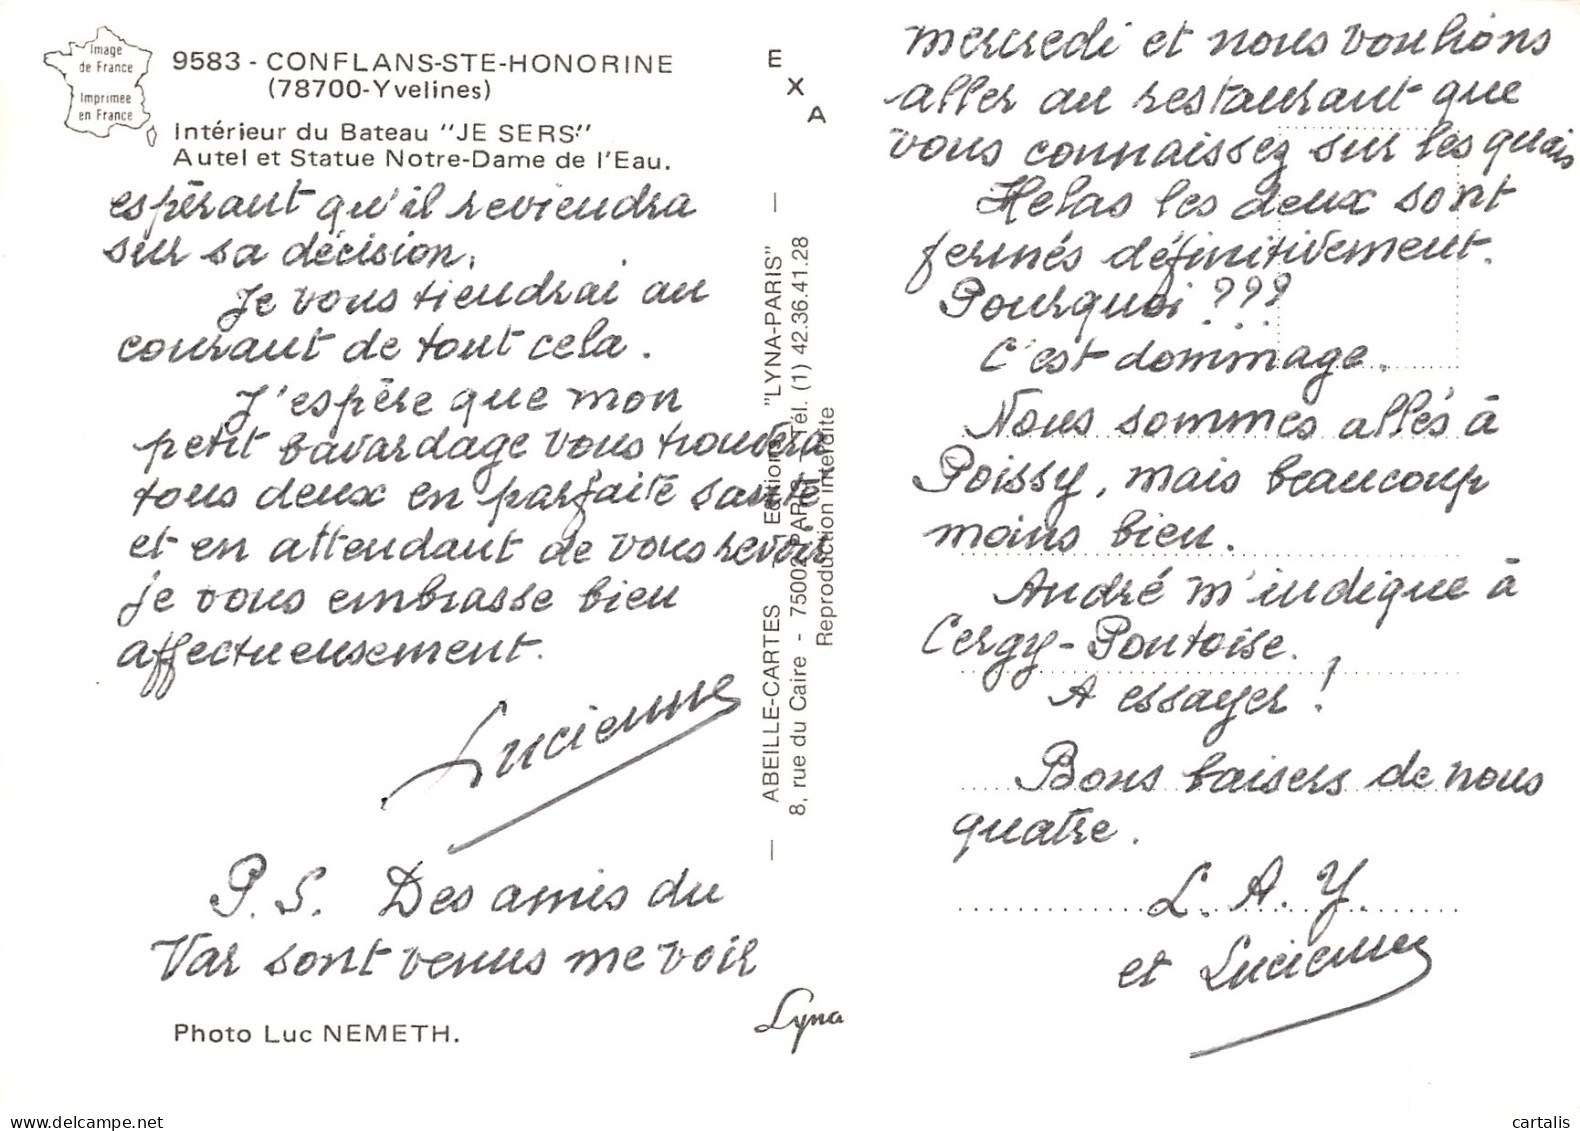 Image
de France
Imprimee
en France
9583 - CONFLANS-STE-HONORINE
(78700-Yvelines)
Intérieur du Bateau "JE SERS"
Autel et Statue Notre-Dame de l'Eau.
espérant qu'il reviendra
sur sa décision.
Je vous tiendrai au
courant de tout cela.
J'espère que mon
petit bavardage vous trouvera
tous deux en parfaite santé
et en attendant de vous revoir
je vous embrasse bien
affectueusement.
Lucienne
P.S. Des amis du
Var sont venus me voir
Photo Luc NEMETH.
E
X
A
ABEILLE-CARTES - Editions "LYNA-PARIS"
8, rue du Caire - 75002 PARIS - Tél. (1) 42.36.41.28
Reproduction interdite
Lyna
mercredi et nous voulions
aller au restaurant que
vous connaissez sur les quais
Helas les deux sont
fermés définitivement.
Pourquoi ???
C'est dommage.
Nous sommes allés à
Poissy, mais beaucoup
moins bien.
André m'indique à
Cergy-Pontoise.
A essayer !
Bons baisers de nous
quatre.
L. A. Y.
et Lucienne
cartalis